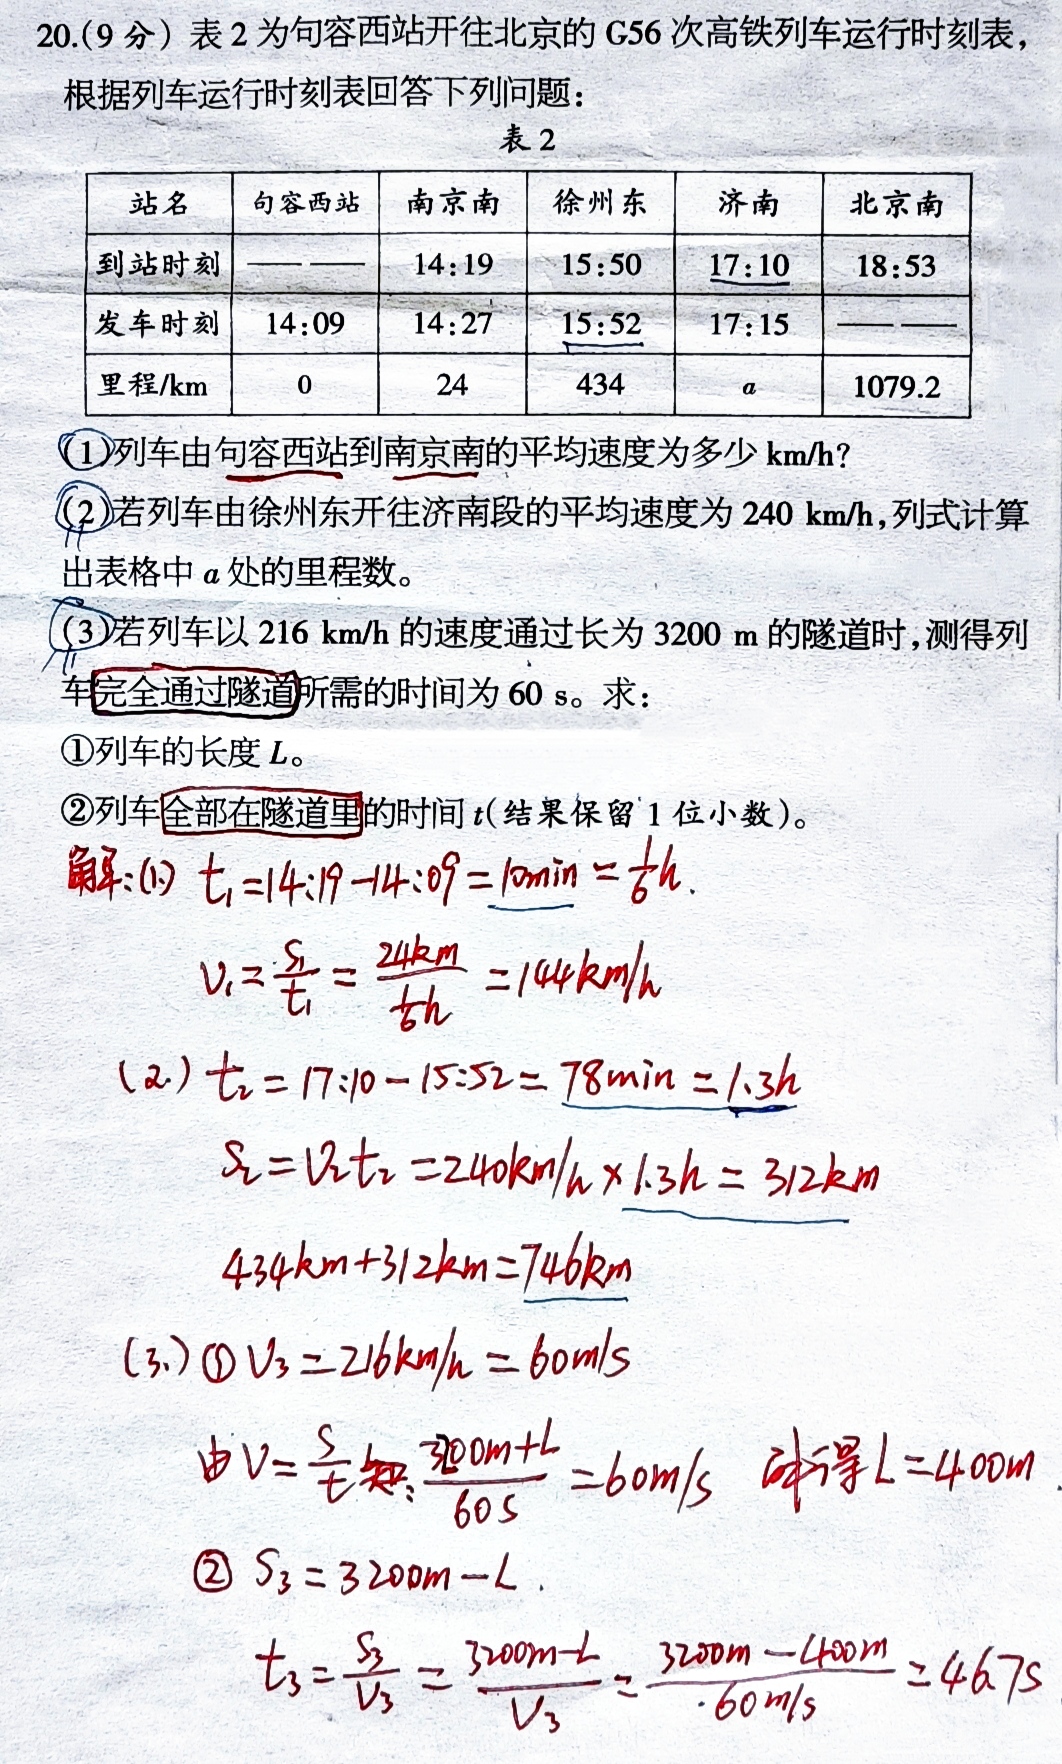 20.(9 分) 表 2 为句容西站开往北京的 G56 次高铁列车运行时刻表,
根据列车运行时刻表回答下列问题:
表 2
站名 句容西站 南京南 徐州东 济南 北京南
到站时刻 —— —— 14:19 15:50 17:10 18:53
发车时刻 14:09 14:27 15:52 17:15 —— ——
里程/km 0 24 434 a 1079.2
(1)列车由句容西站到南京南的平均速度为多少 km/h?
(2)若列车由徐州东开往济南段的平均速度为 240 km/h,列式计算
出表格中 a 处的里程数。
(3)若列车以 216 km/h 的速度通过长为 3200 m 的隧道时,测得列
车完全通过隧道所需的时间为 60 s。求:
①列车的长度 L。
②列车全部在隧道里的时间 t(结果保留 1 位小数)。
解:(1) t₁=14:19-14:09=10min=1/6h.
V₁=S₁/t₁=24km/(1/6h)=144km/h
(2.) t₂=17:10-15:52=78min=1.3h
S₂=V₂t₂=240km/h×1.3h=312km
434km+312km=746km
(3.)① V₃=216km/h=60m/s
由V=S/t知:(3200m+L)/60s=60m/s 解得L=400m.
② S₃=3200m-L.
t₃=S₃/V₃=(3200m-L)/V₃=(3200m-400m)/60m/s=46.7s